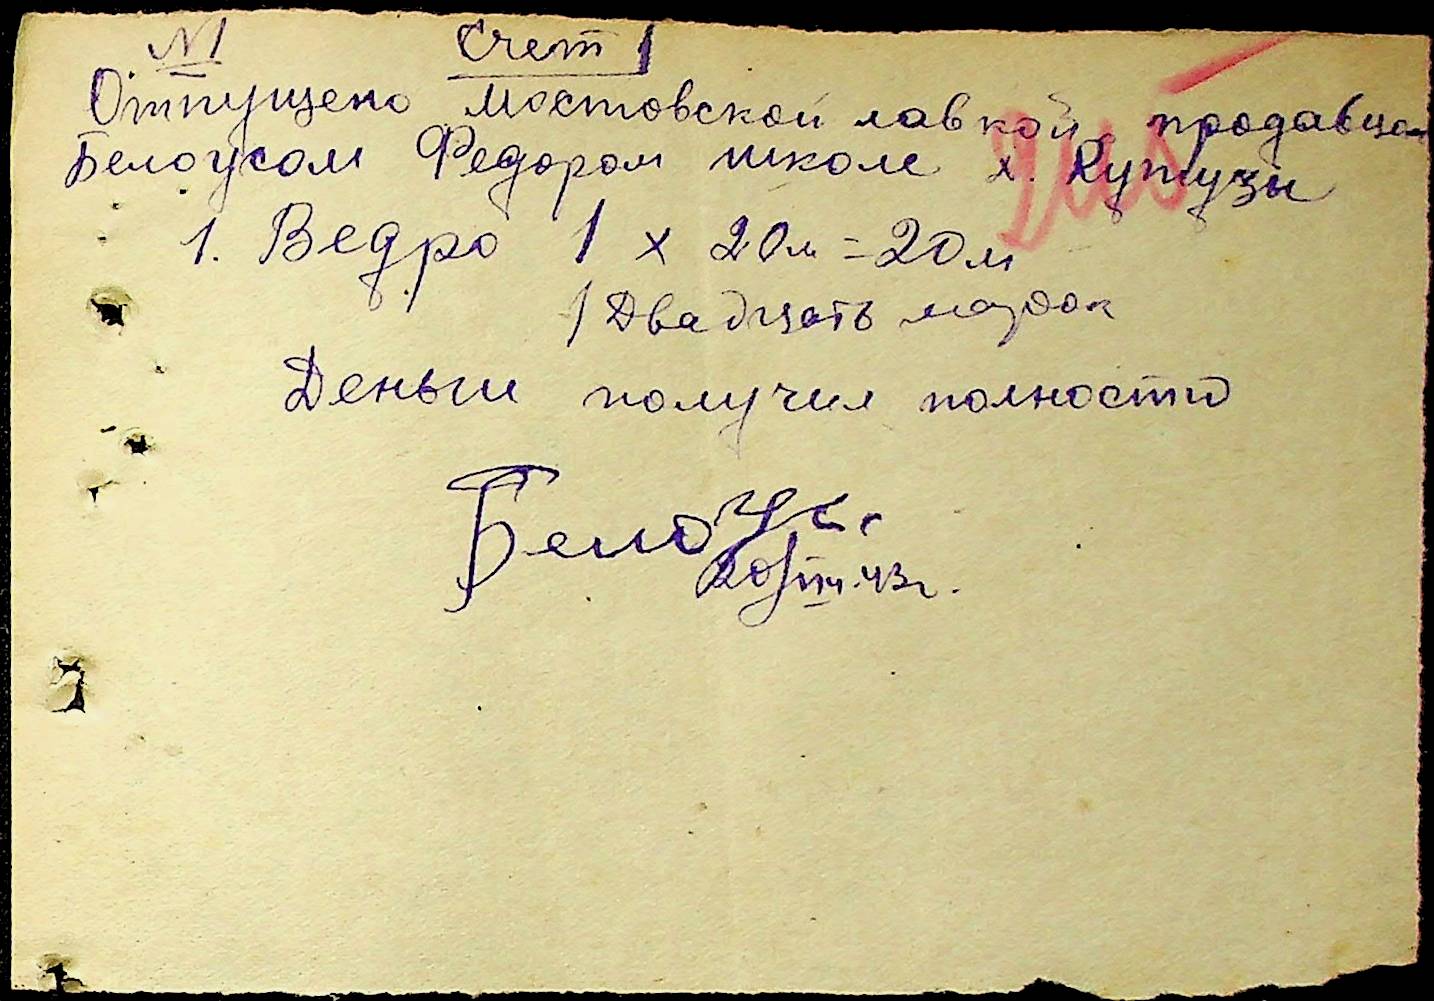 №1 Счет 1
Отпущено Мостовской лавкой, продавцом
Белоусом Федором школе х. Кутузы
1. Ведро 1 х 20м = 20м
/Двадцать марок
Деньги получил полностю
Белоус.
20/III.43г.